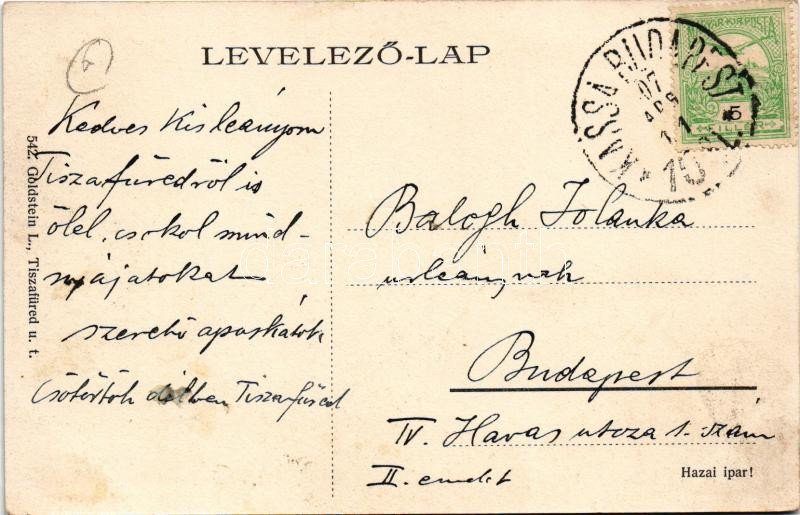 LEVELEZŐ-LAP
Kedves Kisleányom
Tiszafüredről is
ölel, csokol mind-
nyájatokat
szerető apuskátok
Csötörtök délben Tiszafüred
542. Goldstein L., Tiszafüred u. t.
MAGYAR KIR. POSTA
5
FILLÉR
KASSA BUDAPEST
07
APR
11
15
Balogh Jolánka
urleánynak
Budapest
IV. Havas utcza 1. szám
II. emelet
Hazai ipar!